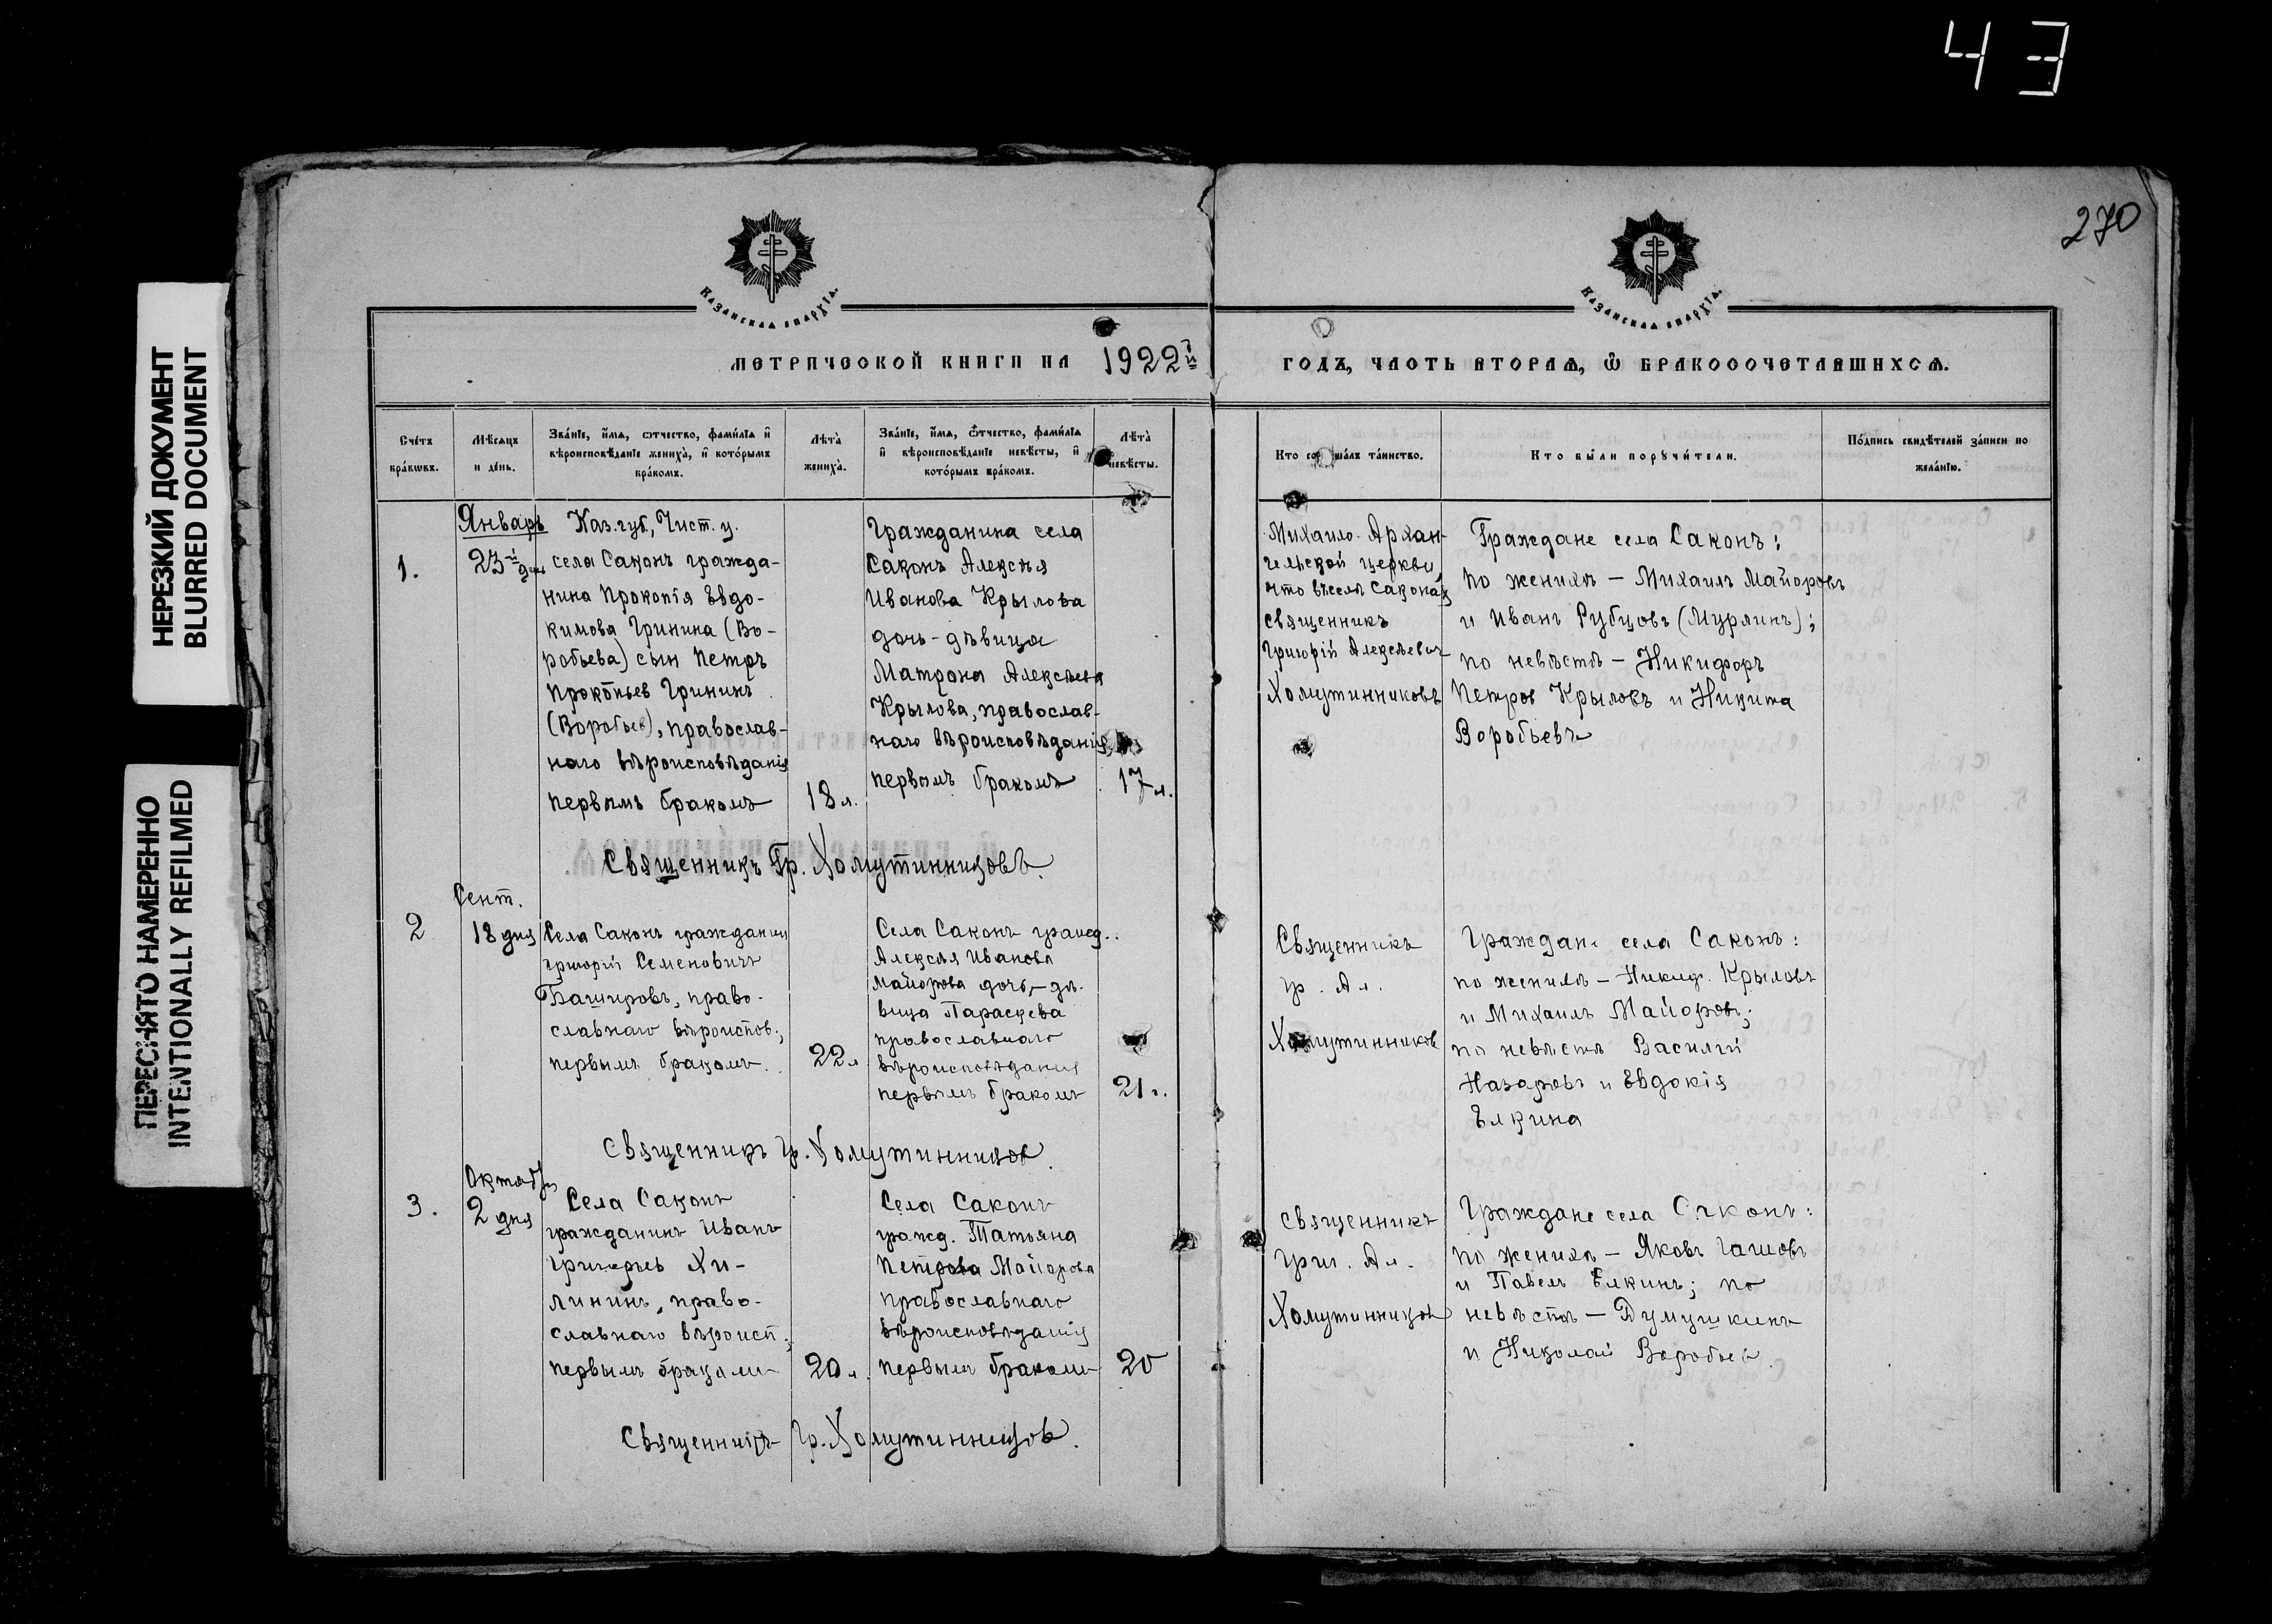 43
270
НЕРЕЗКИЙ ДОКУМЕНТ
BLURRED DOCUMENT
ПЕРЕСНЯТО НАМЕРЕННО
INTENTIONALLY REFILMED
Казанская епархїа.
Казанская епархїа.
МЕТРИЧЕСКОЙ КНИГИ НА 1922й
ГОДЪ, ЧАСТЬ ВТОРАѦ, Ѡ БРАКОСОЧЕТАВШИХСѦ.
Сче́тъ бра́кѡвъ.
Мѣ́сѧцъ и де́нь.
Зва́нїе, и́мѧ, ѻтчество, фами́лїѧ и вѣроисповѣ́данїе жениха̀, и кото́рымъ бра́комъ.
Лѣта̀ жениха̀.
Зва́нїе, и́мѧ, ѻтчество, фами́лїѧ и вѣроисповѣ́данїе невѣ́сты, и кото́рымъ бра́комъ.
Лѣта̀ невѣ́сты.
Кто̀ соверша́лъ та́инство.
Кто̀ бы́ли порꙋчи́тели.
По́дпись свидѣ́телей за́писи по жела́нїю.
1.
Январь
23й дня
Каз. губ., Чист. у.
села Саконъ гражда-
нина Прокопія Евдо-
кимова Гринина (Во-
робьева) сын Петръ
Прокопьев Грининъ
(Воробьев), православ-
наго вѣроисповѣданія
первымъ бракомъ
18 л.
Гражданина села
Саконъ Алексѣя
Иванова Крылова
дочь - дѣвица
Матрона Алексѣева
Крылова, православ-
наго вѣроисповѣданія,
первымъ бракомъ
17 л.
Михаило-Архан-
гельской церкви
что въ селѣ Саконах
священникъ
Григорій Алексѣевич
Холмутинниковъ
Граждане села Саконъ:
по женихѣ – Михаилъ Майоровъ
и Иванъ Рубцовъ (Мурлинъ);
по невѣстѣ – Никифоръ
Петров Крыловъ и Никита
Воробьевъ
Священникъ Гр. Хомутинниковъ.
2
Сент.
18 дня
Села Саконъ гражданин
Григорій Семеновичъ
Башировъ, право-
славнаго вѣроиспов.,
первымъ бракомъ.
22 л
Села Саконъ гражд.
Алексѣя Иванова
Майорова дочь, – дѣ-
вица Параскева
православнаго
вѣроисповѣдания
первымъ бракомъ
21 г.
Священникъ
Гр. Ал.
Хомутинников
Граждане села Саконъ:
по женихѣ – Никиф. Крыловъ
и Михаилъ Майоровъ;
по невѣстѣ Василий
Назаровъ и Евдокія
Елкина
Священникъ Гр. Хомутинников.
3.
Октября
2 дня
Села Саконъ
гражданинъ Иванъ
Григорьев Хи-
лининъ, право-
славнаго вѣроисп.,
первымъ бракомъ
20 л.
Села Саконъ
гражд. Татьяна
Петрова Майорова
православнаго
вѣроисповѣданія
первымъ бракомъ
20
Священникъ
Григ. Ал.
Хомутинников
Граждане села Саконъ:
по женихѣ – Яковъ Гашовъ
и Павелъ Елкинъ; по
невѣстѣ – Думушкинъ
и Николай Воробьев.
Священникъ Гр. Хомутинников.